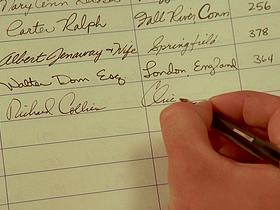 Mary Ann
Carter Ralph Fall River, Conn 256
Albert Janaway & Wife Springfield 378
Walter Dom Esq London England 364
Richard Collier Chic